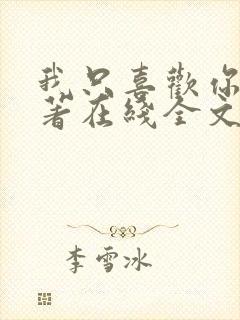 我只喜歡你
著在綫全文
李雪冰